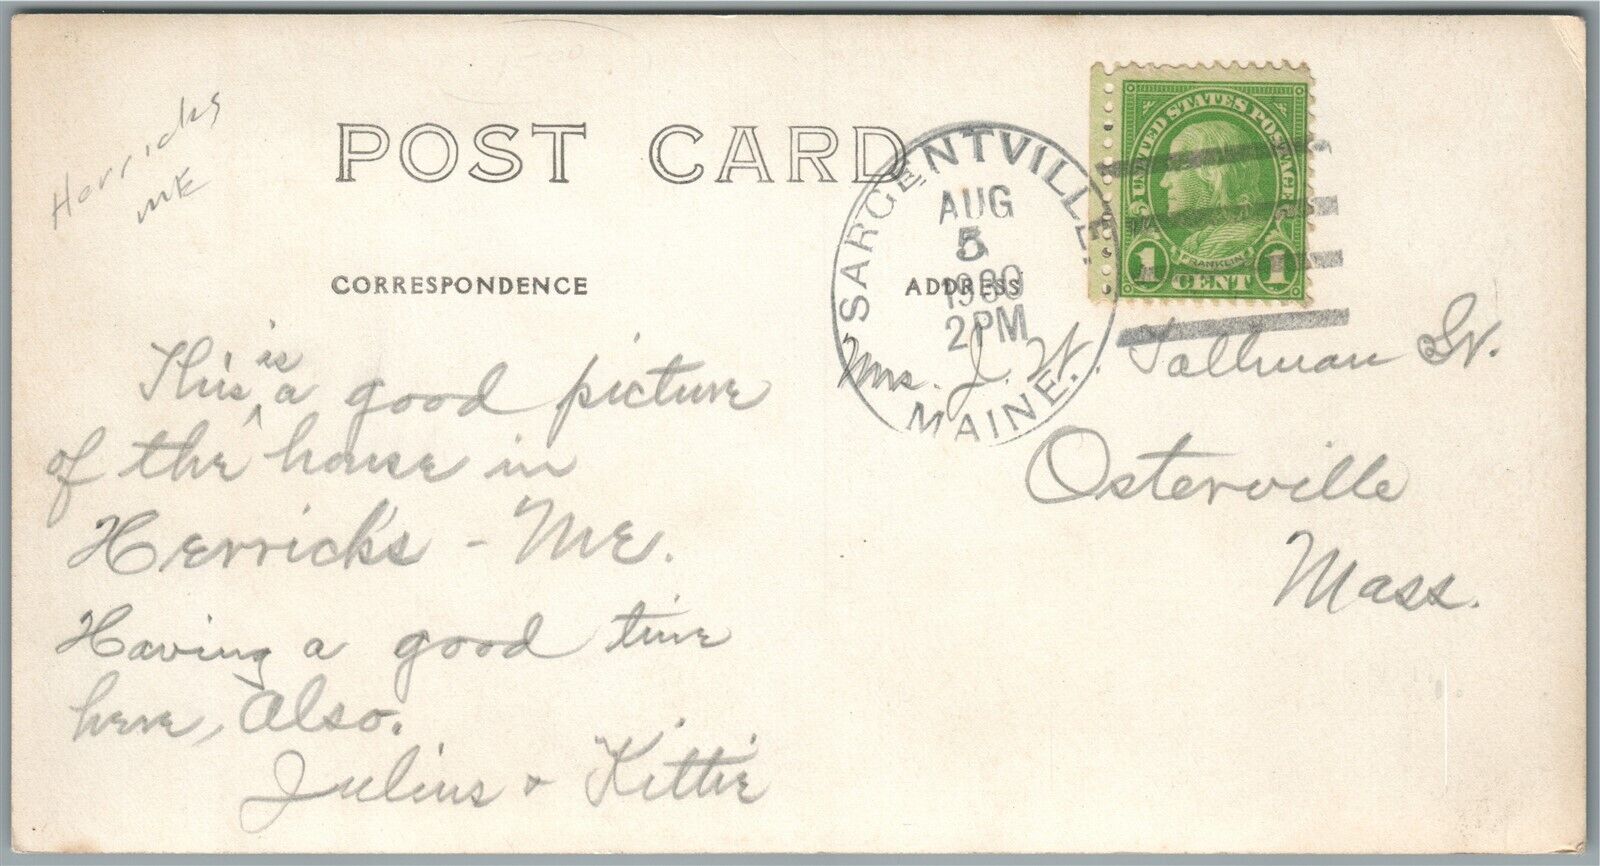 Herricks
ME
POST CARD
SARGENTVILLE,
MAINE.
AUG
5
1930
2PM
UNITED STATES POSTAGE
FRANKLIN
1 CENT 1
CORRESPONDENCE
ADDRESS
This is a good picture
of the house in
Herrick's - ME.
Having a good time
here, Also.
Julius & Kittie
Mrs. J. W. Tallman Sr.
Osterville
Mass.